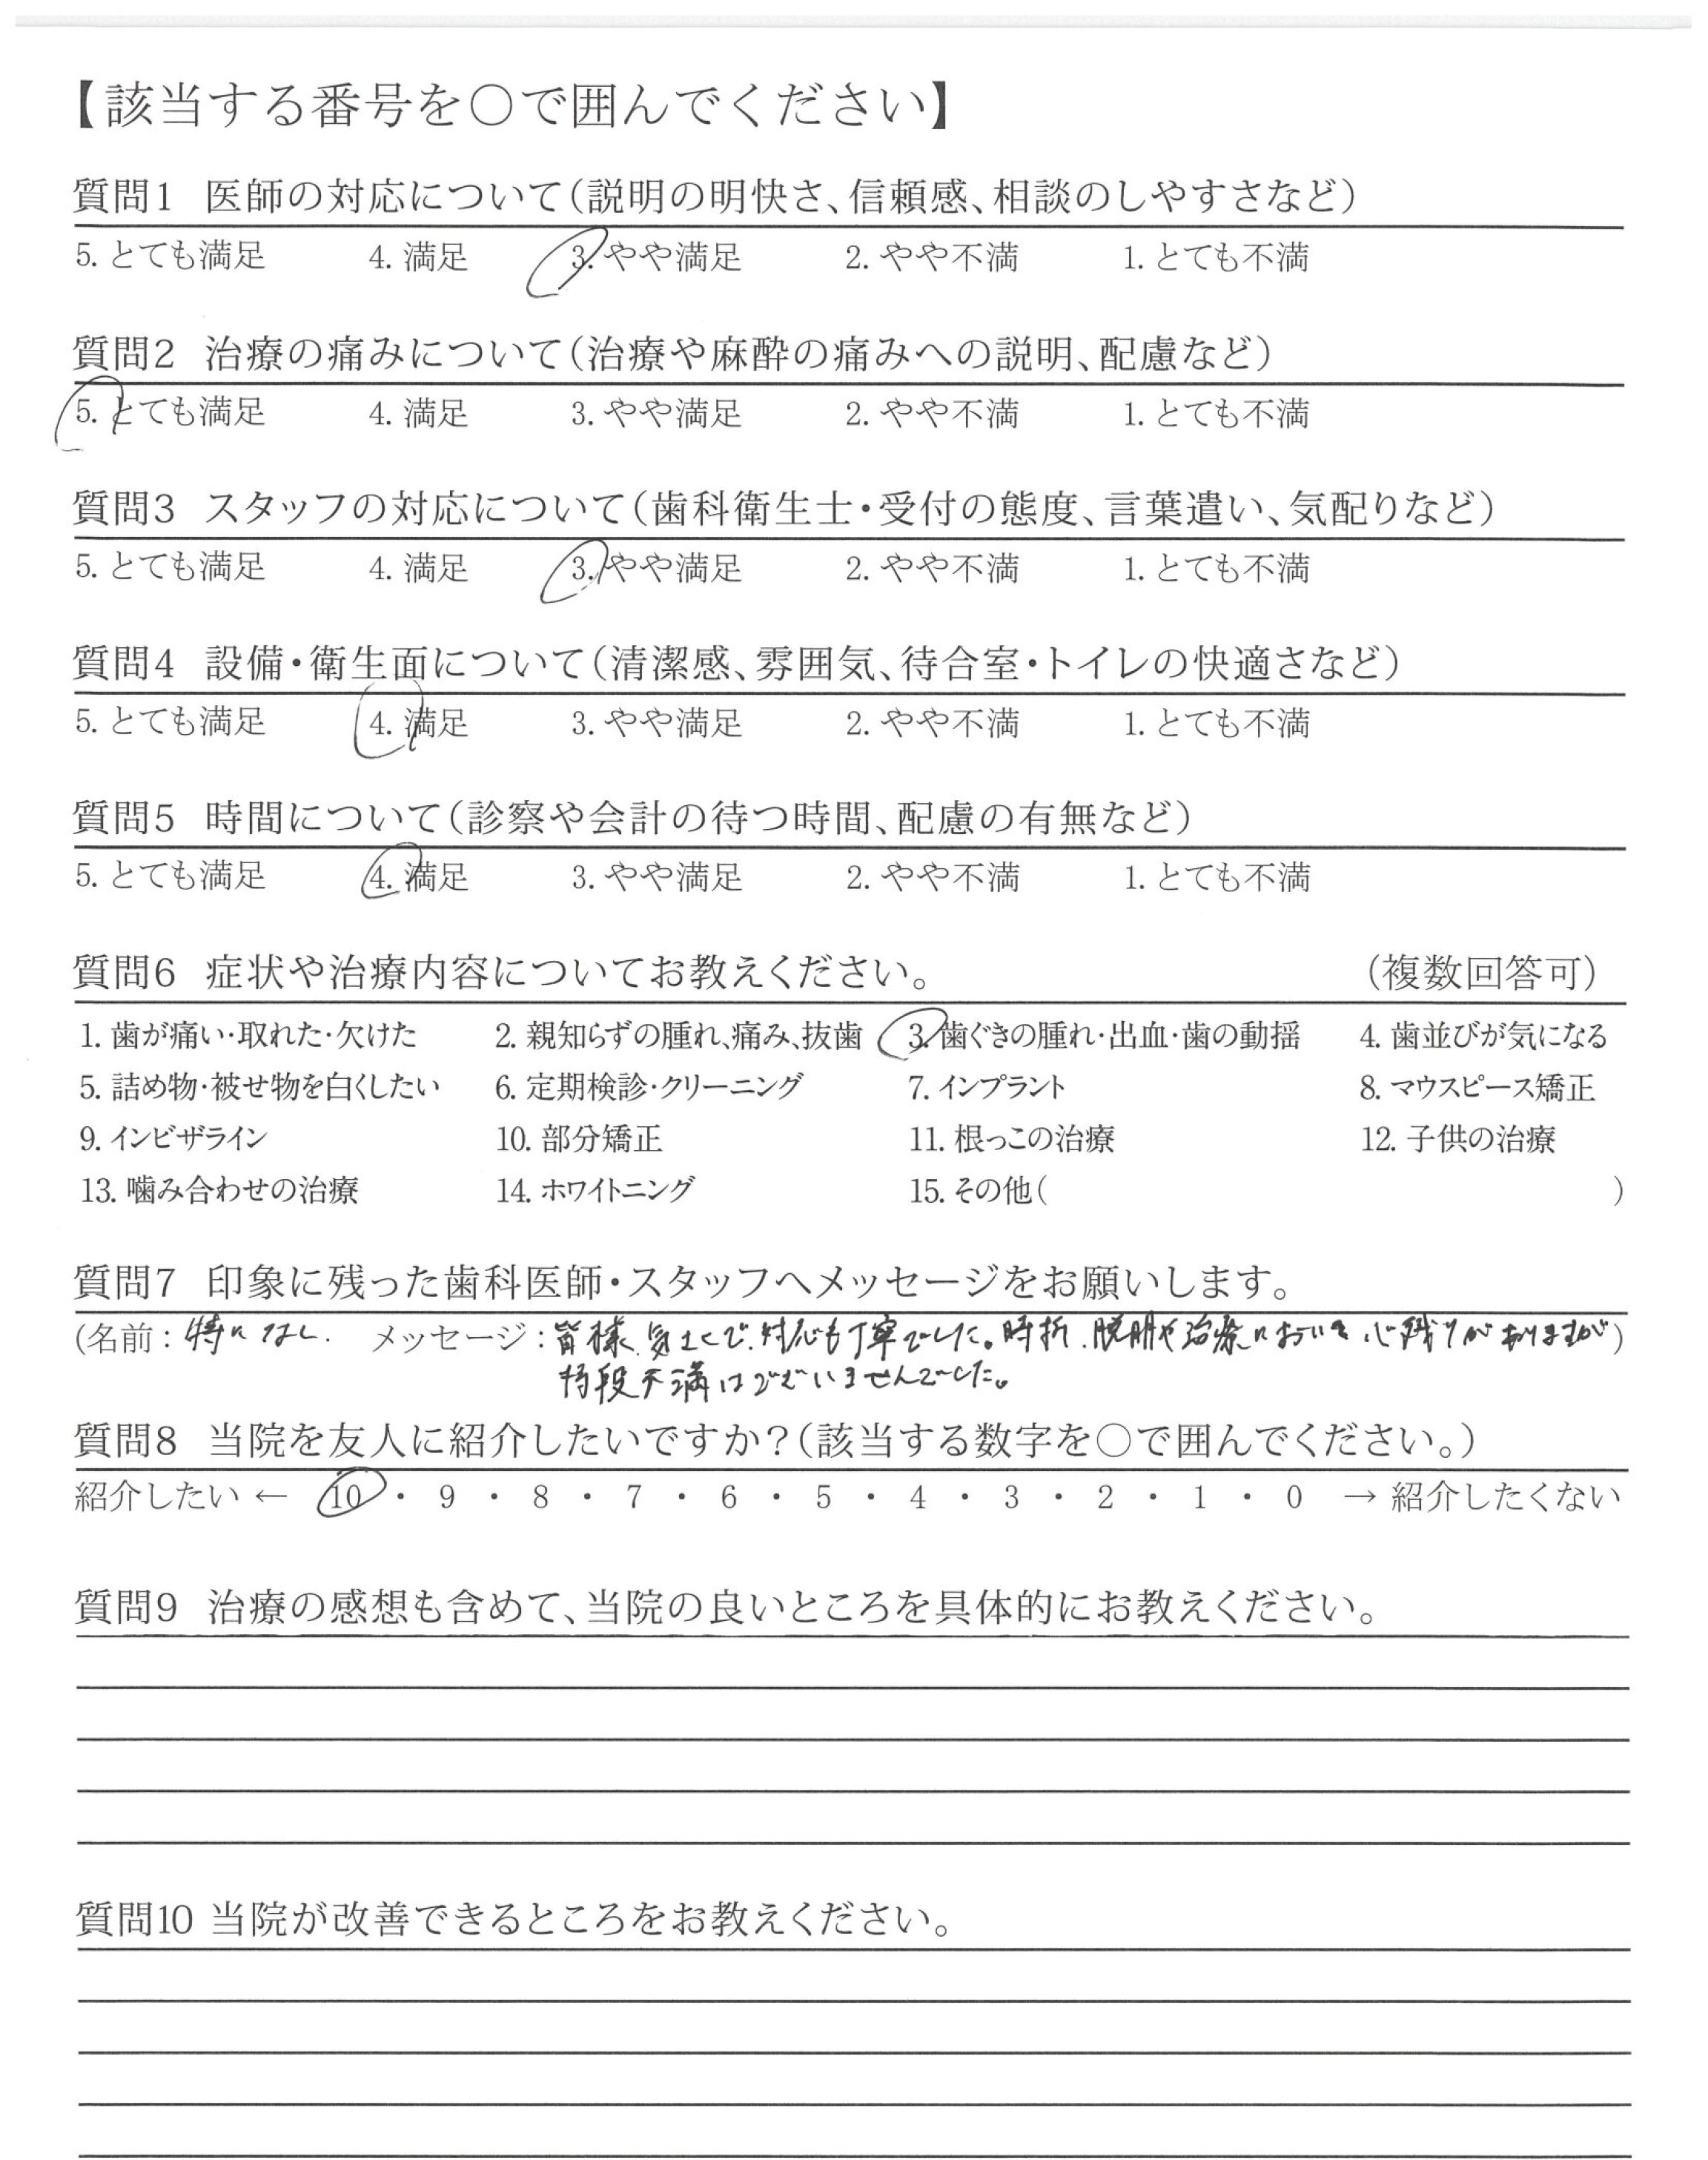 【該当する番号を○で囲んでください】
質問1 医師の対応について(説明の明快さ、信頼感、相談のしやすさなど)
5. とても満足 4. 満足 3. やや満足 2. やや不満 1. とても不満
質問2 治療の痛みについて(治療や麻酔の痛みへの説明、配慮など)
5. とても満足 4. 満足 3. やや満足 2. やや不満 1. とても不満
質問3 スタッフの対応について(歯科衛生士・受付の態度、言葉遣い、気配りなど)
5. とても満足 4. 満足 3. やや満足 2. やや不満 1. とても不満
質問4 設備・衛生面について(清潔感、雰囲気、待合室・トイレの快適さなど)
5. とても満足 4. 満足 3. やや満足 2. やや不満 1. とても不満
質問5 時間について(診察や会計の待つ時間、配慮の有無など)
5. とても満足 4. 満足 3. やや満足 2. やや不満 1. とても不満
質問6 症状や治療内容についてお教えください。 (複数回答可)
1. 歯が痛い・取れた・欠けた 2. 親知らずの腫れ、痛み、抜歯 3. 歯ぐきの腫れ・出血・歯の動揺 4. 歯並びが気になる
5. 詰め物・被せ物を白くしたい 6. 定期検診・クリーニング 7. インプラント 8. マウスピース矯正
9. インビザライン 10. 部分矯正 11. 根っこの治療 12. 子供の治療
13. 噛み合わせの治療 14. ホワイトニング 15. その他( )
質問7 印象に残った歯科医師・スタッフへメッセージをお願いします。
(名前:特になし. メッセージ:皆様、気さくで、対応も丁寧でした。時折、 治療において心残りがありますが)
特段不満はございませんでした。
質問8 当院を友人に紹介したいですか?(該当する数字を○で囲んでください。)
紹介したい ← 10 ・ 9 ・ 8 ・ 7 ・ 6 ・ 5 ・ 4 ・ 3 ・ 2 ・ 1 ・ 0 → 紹介したくない
質問9 治療の感想も含めて、当院の良いところを具体的にお教えください。
質問10 当院が改善できるところをお教えください。